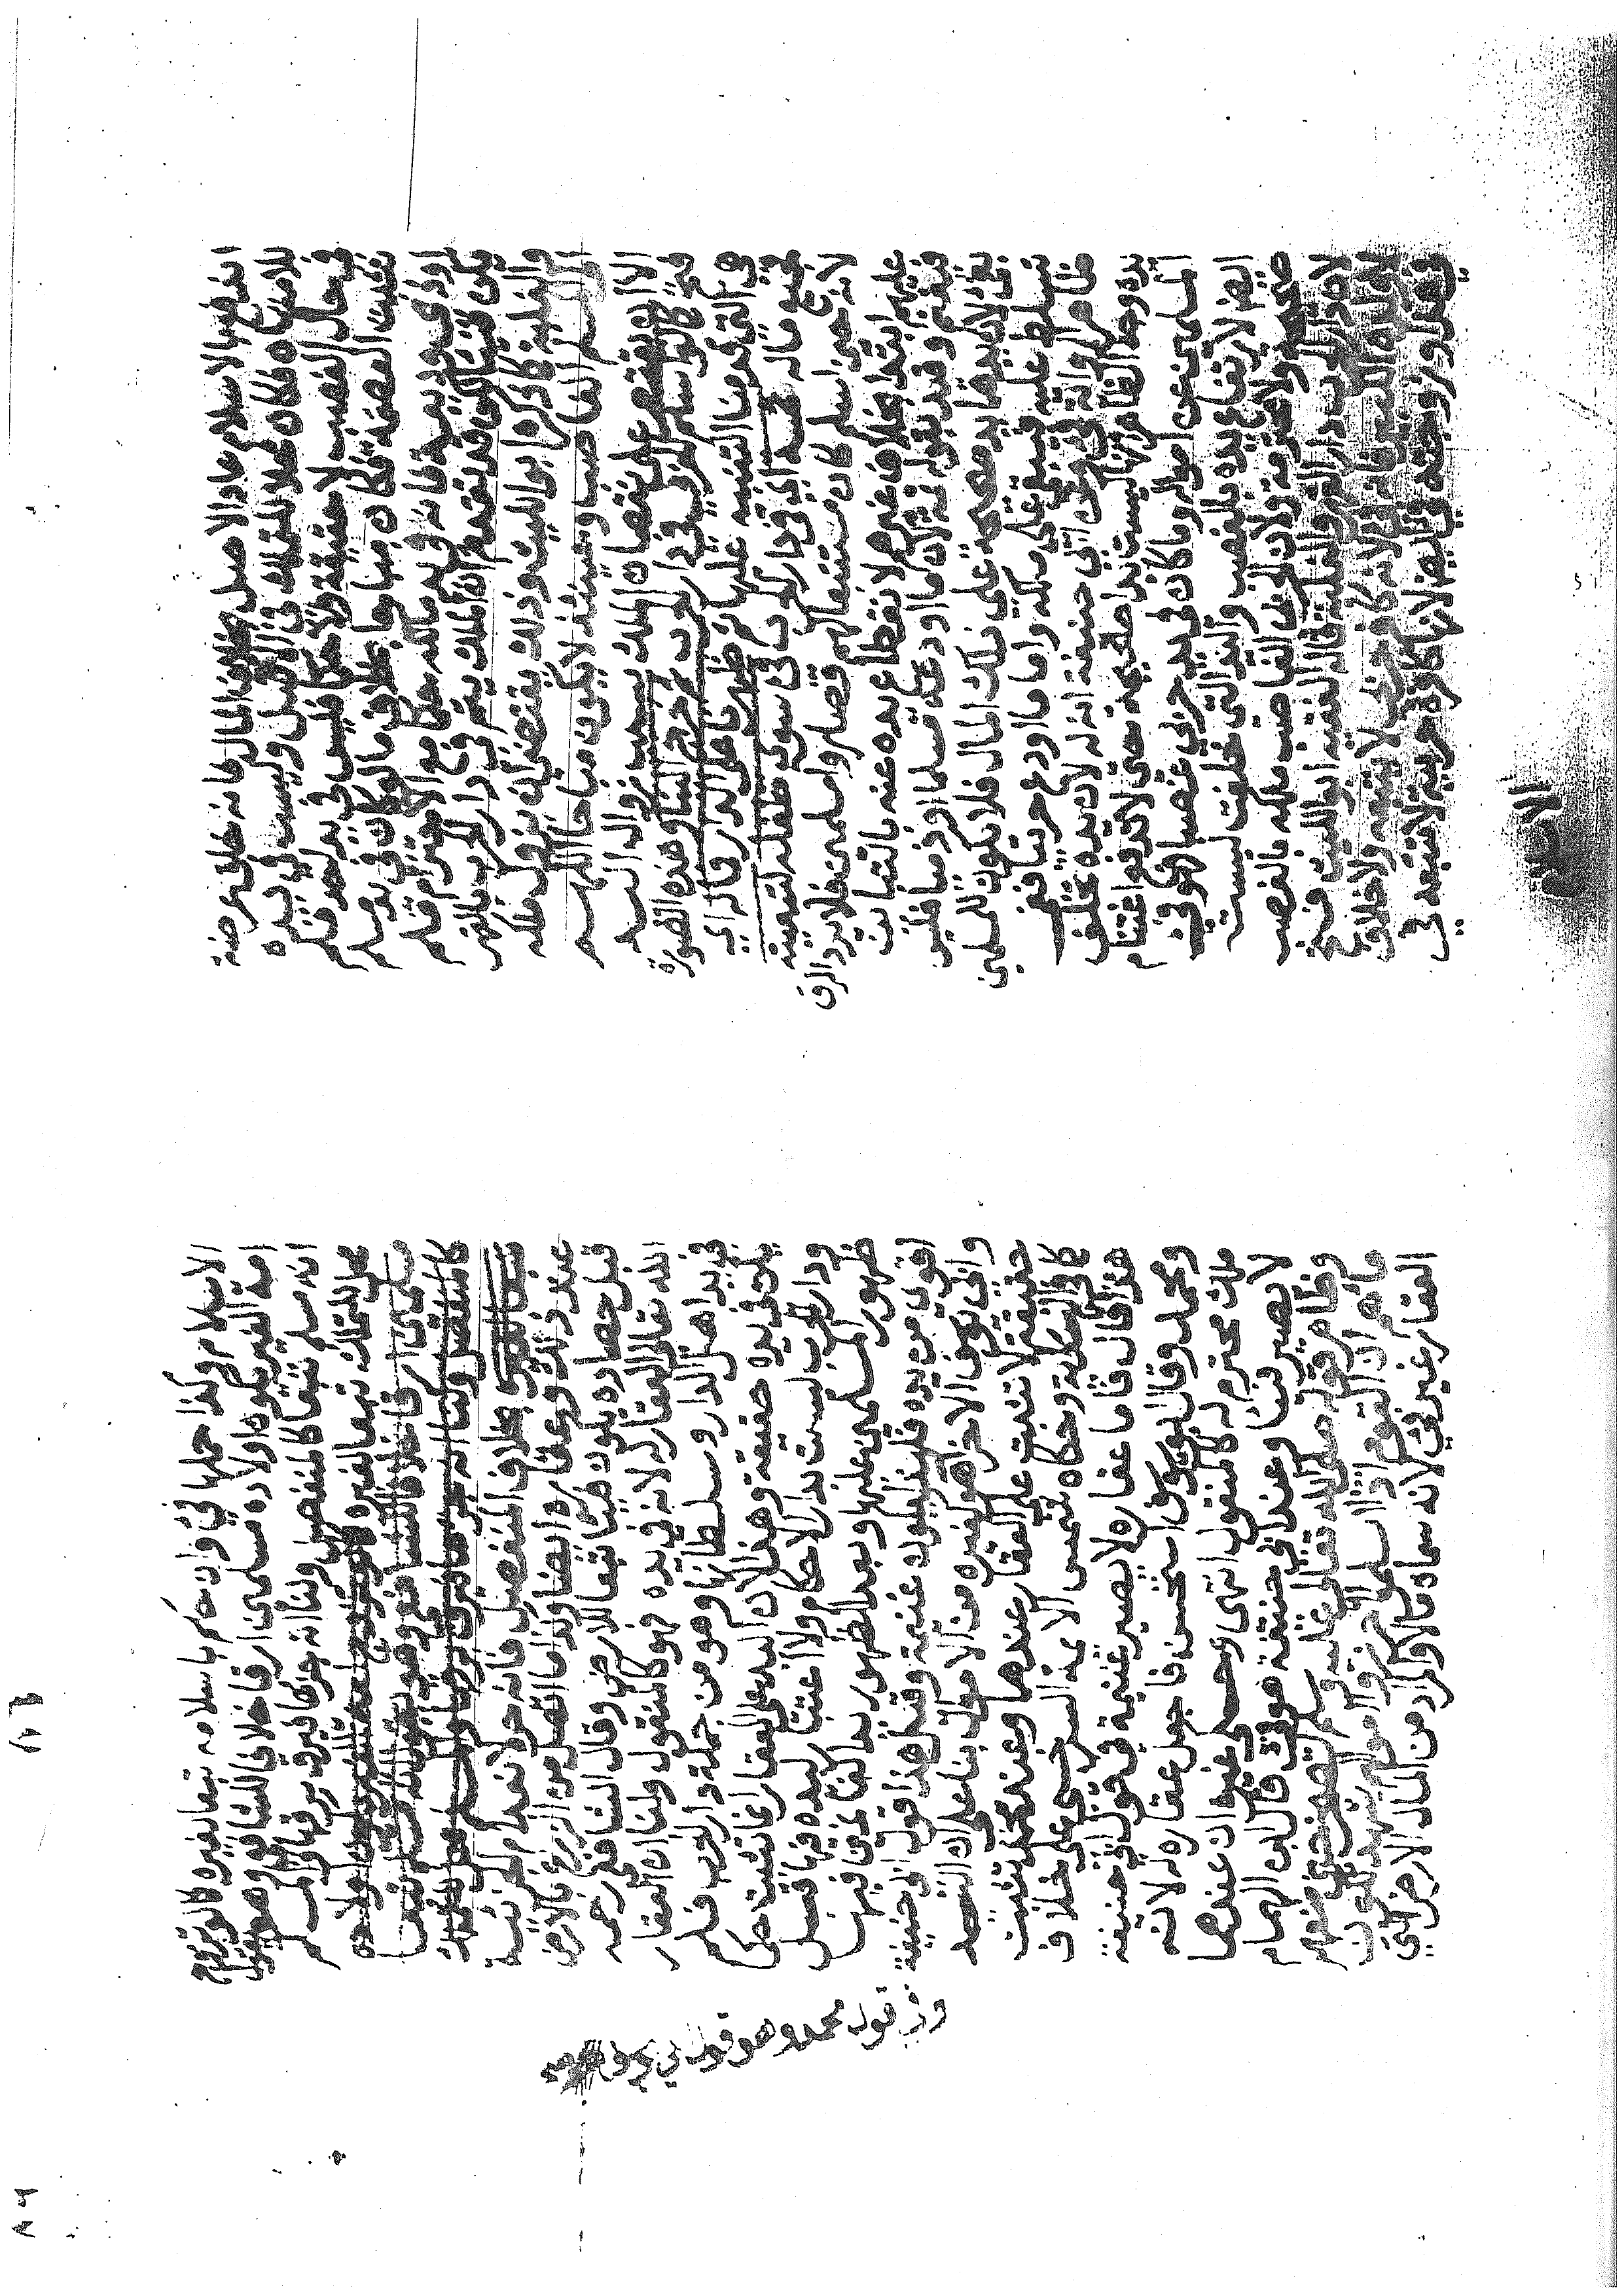 اندفعها الاسلام عاد الاصل بخلاف المال فانه خلق عرضة
للامتهان فكان محلا للتملك في الاصل وليست في يده
في حال الغصب لا حقيقة ولا حكما فليس في يد احد فلم
تثبت العصمة فكان مباحا بخلاف ما لو كان في يد مسلم
او ذمي وديعة فانه في يد مالكه حكما مع الاحترام فلم
يكن فيئا لكن قد تقدم ان الملك يتم في دار الحرب بالقهر
والغلبة كما ذكره ابو الليث وذلك يقتضي ان يزول ملكه
الغاصب وحينئذ لا يكون مباحا اللهم
الا ان يقتصر على انتقاض الملك بمجرد زوال اليد
اسلم الحربي في دار الحرب ثم خرج الينا وهذه الصورة
هي التي قدمنا التنبيه عليها ثم ظهرنا على الدار قال اي
جميع ماله ثمة اي في دار الحرب فئ سوى طفله لتبعيته
لانه حين اسلم كان مستتبعا لهم فصاروا مسلمين فلا يرد الرق
عليهم ابتداء بخلاف غيرهم لانقطاع يده عنه بالتباين
فيغنم وقيد بقوله ثمة لان ما اودعه مسلما او ذميا فليس
بفئ لان يدهما يد صحيحة على ذلك المال فلا يكون للمسلمين
تسلط عليه فيبقى على ملكه واما ما اودع حربيا ففئ
ظاهر الرواية وعن ابي حنيفة انه له لان يده تخلف
يده وجه الظاهر انها ليست يدا صحيحة حتى لا تدفع اغتنام
المسلمين عن امواله وما كان في يد حربي غصبا فهو فئ
ايضا لارتفاع يده بالغصب واليد التي خلفت ليست
صحيحة ولا محترمة ولان الحربي الغاصب ملكه بالغصب
لان دار الحرب دار القهر والغلبة قاله الفقيه ابو الليث في شرح
ولده الكبير فانه فئ لانه كافر حربي لا يتبعه ولا خلاف
وزوجته لانها كافرة حربية لا تتبعه في
الاسلام وكذا حملها فئ وان حكم باسلامه تبعا لغيره كما لو تزوج
امة الغير يكون اولاده مسلمين ارقاء خلافا للشافعي وهو يقول
انه مسلم تبعا كالمنفصل ولنا انه جزؤها فيرق برقها والمسلم
محل للتملك تبعا لغيره
كالمنفصل ولنا انه
بخلاف المنفصل فانه حر لانعدام الجزئية
عند ذلك وعقاره ايضا وكذا ما اتصل من الزرع بالارض
قبل حصاده يكون فيئا تبعا للارض وقال الشافعي رحمه
الله تعالى العقار له لانه في يده فهو كالمنقول ولنا ان العقار
في يد اهل الدار وسلطانها وهو من جملة دار الحرب فلم
يكن في يده حقيقة وهذا لان اليد على العقار انما تثبت حكما
ودار الحرب ليست بدار الاحكام ولا اعتبار ليده فيها قبل
ظهور المسلمين عليها وبعد الظهور يد الغانمين فيها
اقوى من يده فلهذا يكون غنيمة وقيل هذا قول ابي حنيفة
وابي يوسف الاخر هو كغيره من الاموال بناء على ان اليد
حقيقة لا تثبت على العقار عندهما وعند محمد تثبت
كما في التكملة وحكاه شمس الائمة السرخسي على خلاف
هذا قال فاما عقاره لا يصير غنيمة في قول ابي حنيفة
ومحمد وقال ابو يوسف استحسن فاجعل عقاره له لانه
ملك محترم له كالمنقول انتهى وحكى غيره ان عندهما
لا يصير فيئا وعند ابي حنيفة هو فئ قال ابن الهمام
وظاهر قوله صلى الله تعالى عليه وسلم
ان القوم اذا اسلموا احرزوا اموالهم
العقار غير فئ لانه سماه مالا والمراد من المال الارض التي
وفي قول محمد وهو قول ابي يوسف